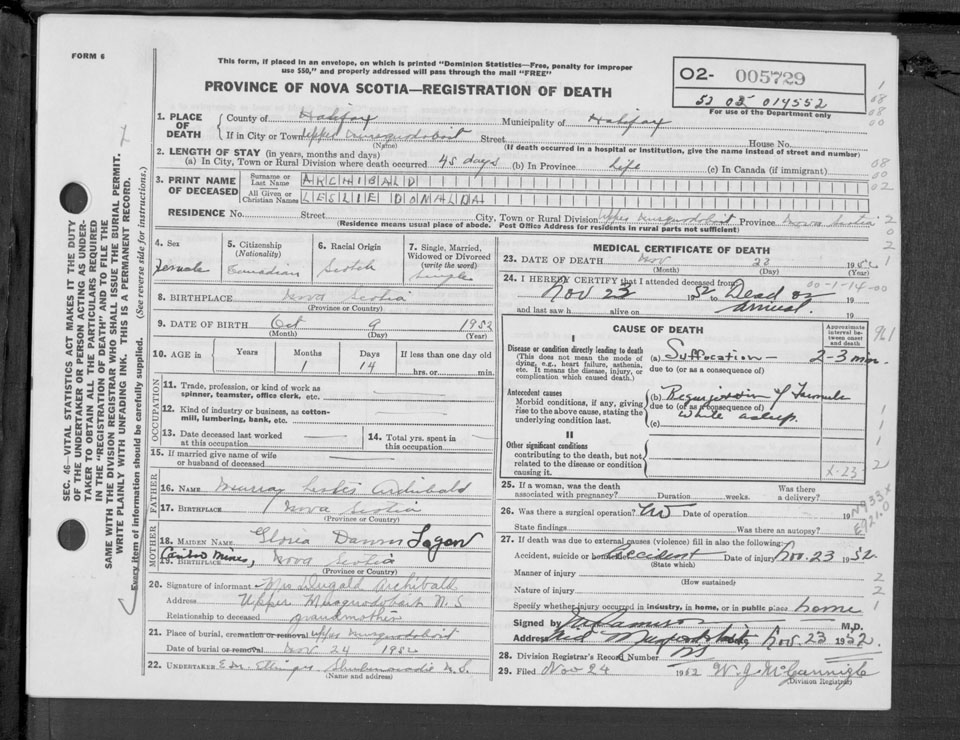 FORM 6
This form, if placed in an envelope, on which is printed "Dominion Statistics—Free, penalty for improper
use $50," and properly addressed will pass through the mail "FREE"
PROVINCE OF NOVA SCOTIA—REGISTRATION OF DEATH
02- 005729
52 02 014552
For use of the Department only
1. PLACE OF DEATH
County of Halifax Municipality of Halifax
If in City or Town Upper Musquodoboit Street House No.
(Name) (If death occurred in a hospital or institution, give the name instead of street and number)
2. LENGTH OF STAY (in years, months and days)
(a) In City, Town or Rural Division where death occurred 45 days (b) In Province Life (c) In Canada (if immigrant)
3. PRINT NAME OF DECEASED
Surname or Last Name ARCHIBALD
All Given or Christian Names LESLIE DONALDA
RESIDENCE No. Street City, Town or Rural Division Upper Musquodoboit Province Nova Scotia
(Residence means usual place of abode. Post Office Address for residents in rural parts not sufficient)
4. Sex Female
5. Citizenship (Nationality) Canadian
6. Racial Origin Scotch
7. Single, Married, Widowed or Divorced (write the word) Single
8. BIRTHPLACE Nova Scotia
(Province or Country)
9. DATE OF BIRTH Oct 9 1952
(Month) (Day) (Year)
10. AGE in Years Months Days If less than one day old
1 14 hrs. or min.
OCCUPATION
11. Trade, profession, or kind of work as
spinner, teamster, office clerk, etc.
12. Kind of industry or business, as cotton-
mill, lumbering, bank, etc.
13. Date deceased last worked
at this occupation
14. Total yrs. spent in
this occupation
15. If married give name of wife
or husband of deceased
FATHER
16. Name Murray Leslie Archibald
17. Birthplace Nova Scotia
(Province or Country)
MOTHER
18. MAIDEN NAME Gloria Logan
19. BIRTHPLACE Caribou Mines, Nova Scotia
(Province or Country)
20. Signature of informant Mrs Dugald Archibald
Address Upper Musquodoboit N.S
Relationship to deceased grandmother
21. Place of burial, cremation or removal Upper Musquodoboit
Date of burial or removal Nov 24 1952
22. UNDERTAKER Shubenacadie N.S.
(Name and address)
MEDICAL CERTIFICATE OF DEATH
23. DATE OF DEATH Nov 23 1952
(Month) (Day) (Year)
24. I HEREBY CERTIFY that I attended deceased from
Nov 23 1952 to Dead on arrival 19
and last saw h alive on 19
00-1-14-00
CAUSE OF DEATH
Approximate interval between onset and death
I
Disease or condition directly leading to death
(This does not mean the mode of dying, e.g., heart failure, asthenia, etc. It means the disease, injury, or complication which caused death.)
(a) Suffocation— 2-3 min.
due to (or as a consequence of)
Antecedent causes
Morbid conditions, if any, giving rise to the above cause, stating the underlying condition last.
(b) Regurgitation of Formula
due to (or as a consequence of)
while asleep.
(c)
II
Other significant conditions
contributing to the death, but not related to the disease or condition causing it.
X-23
25. If a woman, was the death associated with pregnancy? Duration weeks. Was there a delivery?
26. Was there a surgical operation? No Date of operation 19
State findings Was there an autopsy?
27. If death was due to external causes (violence) fill in also the following:
Accident, suicide or homicide? Accident Date of injury Nov. 23 1952
(State which)
Manner of injury
(How sustained)
Nature of injury
Specify whether injury occurred in industry, in home, or in public place home
Signed by M.D.
Address Nov. 23 1952.
28. Division Registrar's Record Number
29. Filed Nov 24 1952
(Division Registrar)
SEC. 46—VITAL STATISTICS ACT MAKES IT THE DUTY
OF THE UNDERTAKER OR PERSON ACTING AS UNDER-
TAKER TO OBTAIN ALL THE PARTICULARS REQUIRED
IN THE "REGISTRATION OF DEATH" AND TO FILE THE
SAME WITH THE DIVISION REGISTRAR WHO SHALL ISSUE THE BURIAL PERMIT.
WRITE PLAINLY WITH UNFADING INK. THIS IS A PERMANENT RECORD.
Every item of information should be carefully supplied. (See reverse side for instructions.)